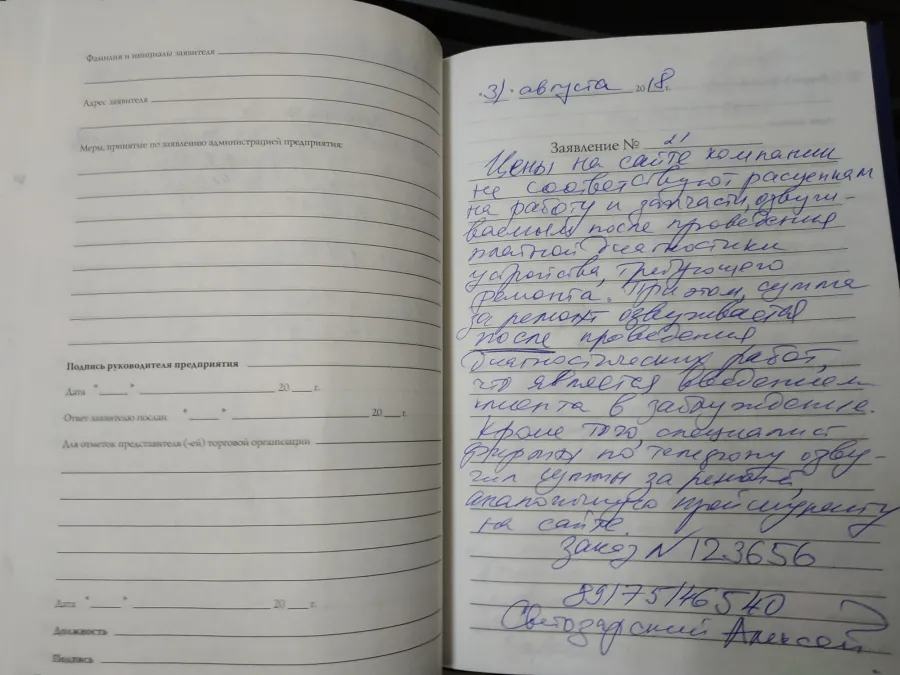 Фамилия и инициалы заявителя
Адрес заявителя
Меры, принятые по заявлению администрацией предприятия:
Подпись руководителя предприятия
Дата " " 20 г.
Ответ заявителю послан " " 20 г.
Для отметок представителя (-ей) торговой организации
Дата " " 20 г.
Должность
Подпись
"31" августа 2018 г.
Заявление № 21
Цены на сайте компании
не соответствуют расценкам
на работу и запчасти, озвучи-
ваемым после проведения
платной диагностики
устройства, требующего
ремонта. При этом, сумма
за ремонт озвучивается
после проведения
диагностических работ,
что является введением
клиента в заблуждение.
Кроме того, специалист
фирмы по телефону озву-
чил суммы за ремонт,
аналогичную прейскуранту
на сайте.
Заказ N 123656
89175146540
Светодарский Алексей